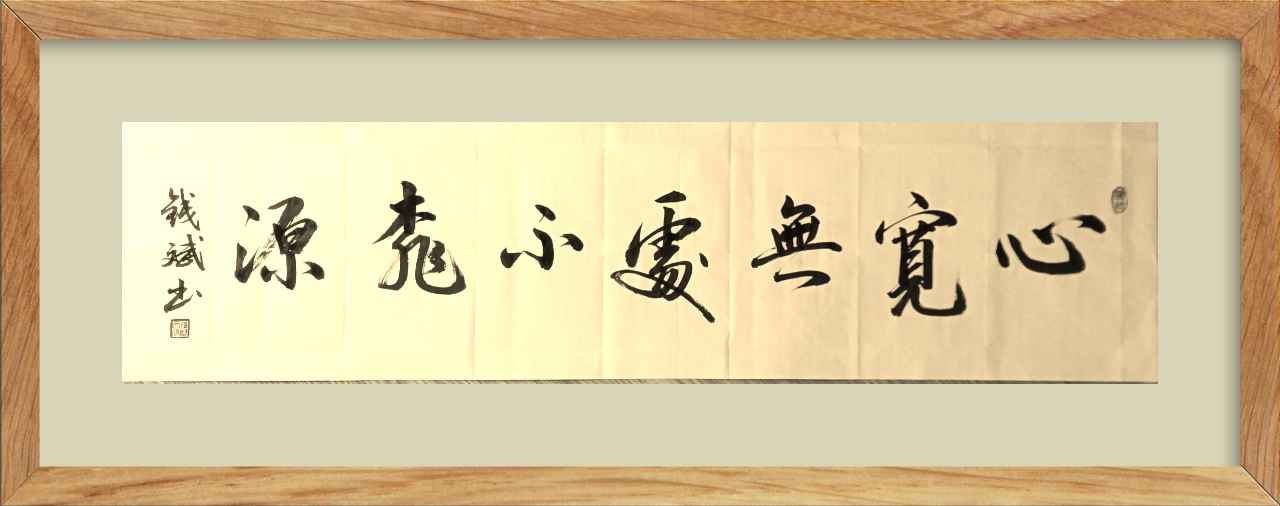 心寬無處不桃源
钱斌书